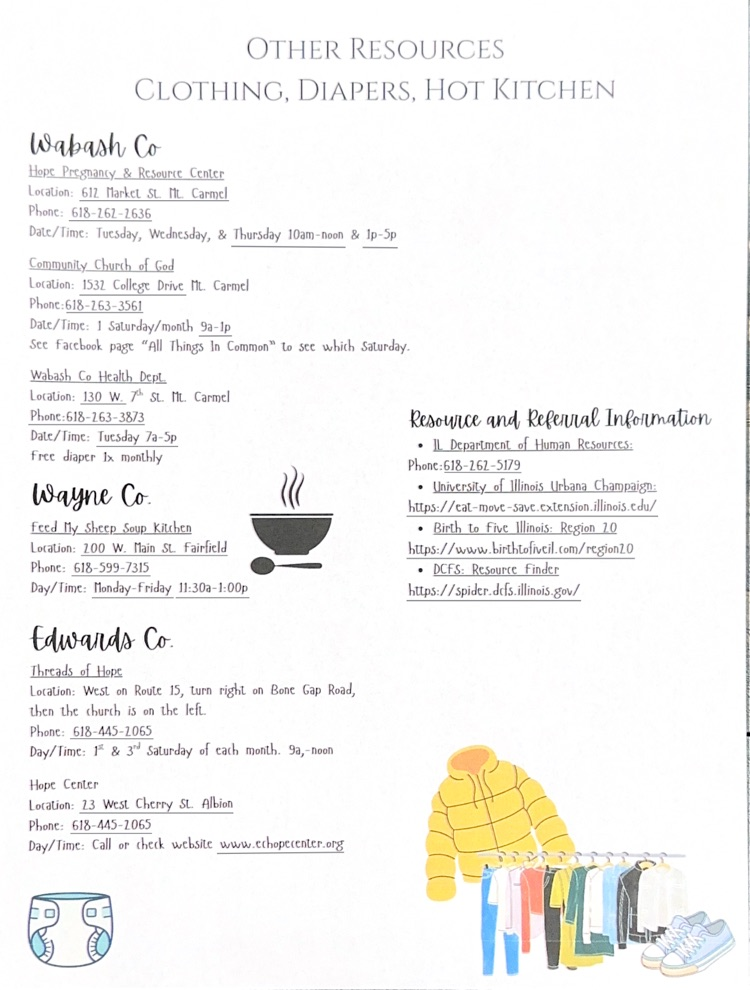 Other Resources
Clothing, Diapers, Hot Kitchen
Wabash Co
Hope Pregnancy & Resource Center
Location: 612 Market St. Mt. Carmel
Phone: 618-262-2636
Date/Time: Tuesday, Wednesday, & Thursday 10am-noon & 1p-5p
Community Church of God
Location: 1532 College Drive Mt. Carmel
Phone:618-263-3561
Date/Time: 1 Saturday/month 9a-1p
See Facebook page “All Things In Common” to see which Saturday.
Wabash Co Health Dept.
Location: 130 W. 7th St. Mt. Carmel
Phone:618-263-3873
Date/Time: Tuesday 7a-5p
Free diaper 1x monthly
Wayne Co.
Feed My Sheep Soup Kitchen
Location: 200 W. Main St. Fairfield
Phone: 618-599-7315
Day/Time: Monday-Friday 11:30a-1:00p
Edwards Co.
Threads of Hope
Location: West on Route 15, turn right on Bone Gap Road,
then the church is on the left.
Phone: 618-445-2065
Day/Time: 1st & 3rd Saturday of each month. 9a,-noon
Hope Center
Location: 23 West Cherry St. Albion
Phone: 618-445-2065
Day/Time: Call or check website www.echopecenter.org
Resource and Referral Information
• IL Department of Human Resources:
Phone:618-262-5179
• University of Illinois Urbana Champaign:
https://eat-move-save.extension.illinois.edu/
• Birth to Five Illinois: Region 20
https://www.birthtofiveil.com/region20
• DCFS: Resource Finder
https://spider.dcfs.illinois.gov/